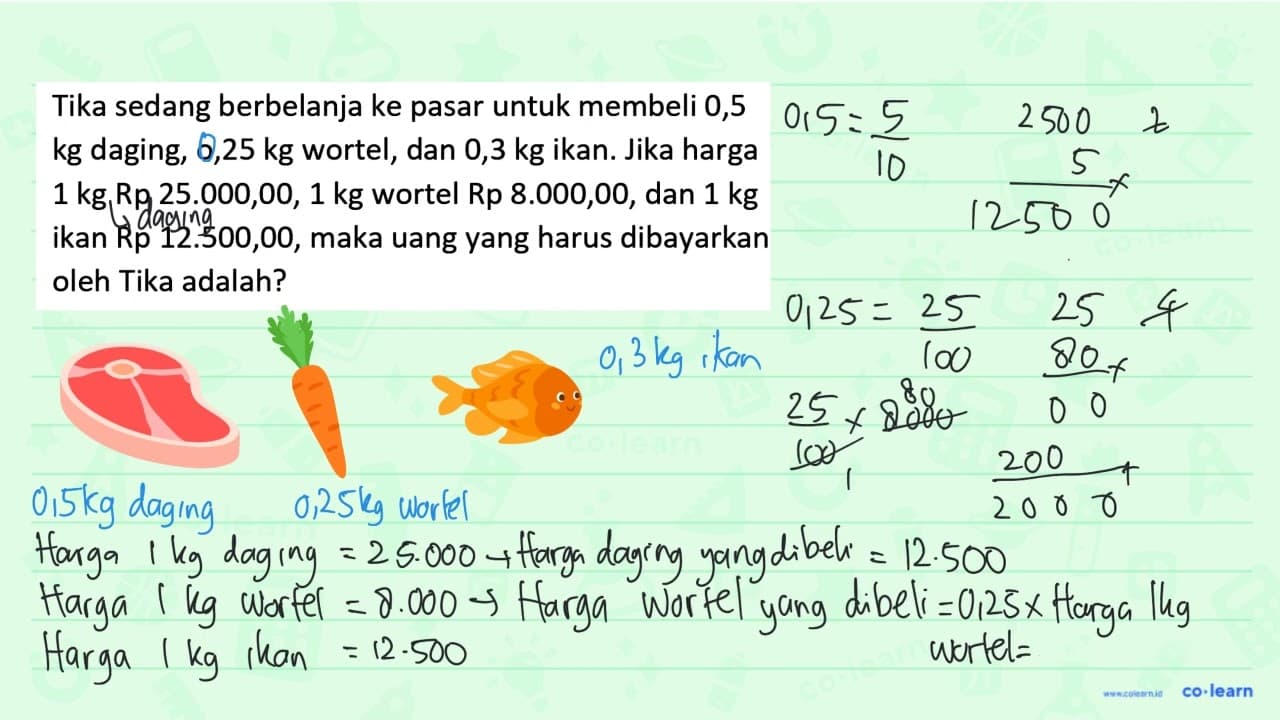 Tika sedang berbelanja ke pasar untuk membeli 0,5
kg daging, 0,25 kg wortel, dan 0,3 kg ikan. Jika harga
1 kg Rp 25.000,00, 1 kg wortel Rp 8.000,00, dan 1 kg
↳ daging
ikan Rp 12.500,00, maka uang yang harus dibayarkan
oleh Tika adalah?
0,5 = 5/10
2500
5 ×
12500
0,25 = 25/100
25
80 ×
00
200 +
2000
25/100 × 8000
80
1
0,3 kg ikan
0,5 kg daging
0,25 kg wortel
Harga 1 kg daging = 25.000 → Harga daging yang dibeli = 12.500
Harga 1 kg wortel = 8.000 → Harga wortel yang dibeli = 0,25 × Harga 1kg
wortel =
Harga 1 kg ikan = 12.500
www.colearn.id co·learn